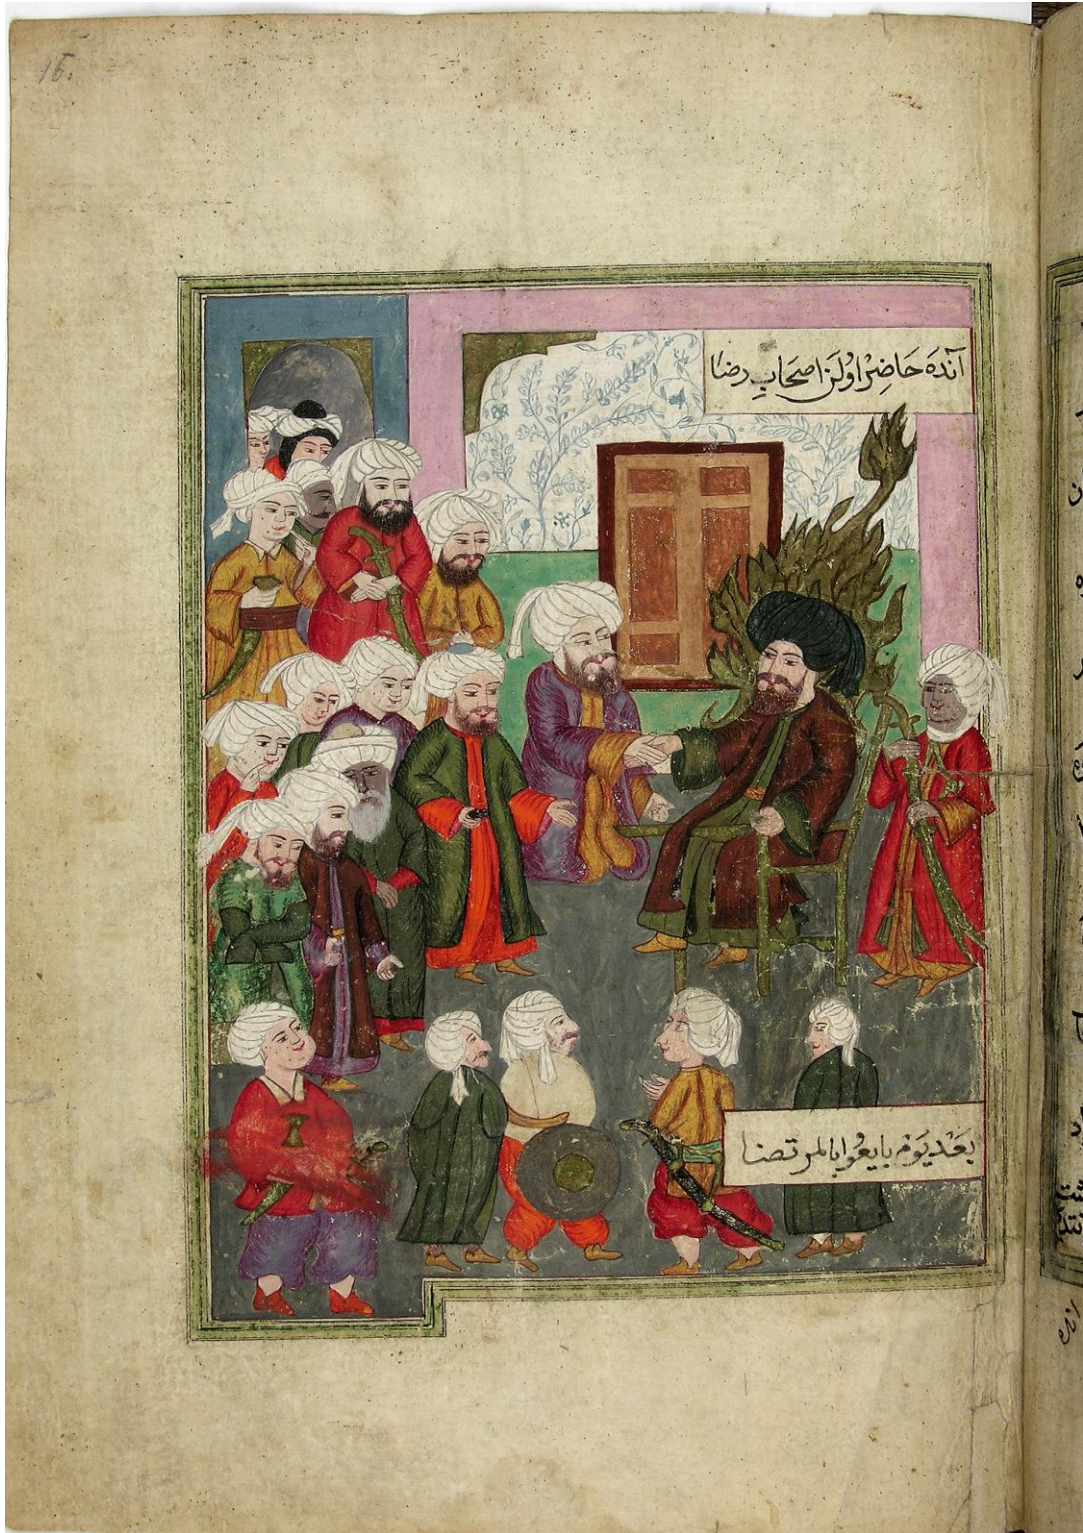 16.
آنْدَه حَاضِرْ اوْلَنْ اصحَابِ رضا
بَعْدَ يَوْمٍ بايعُوا بالمرتضا